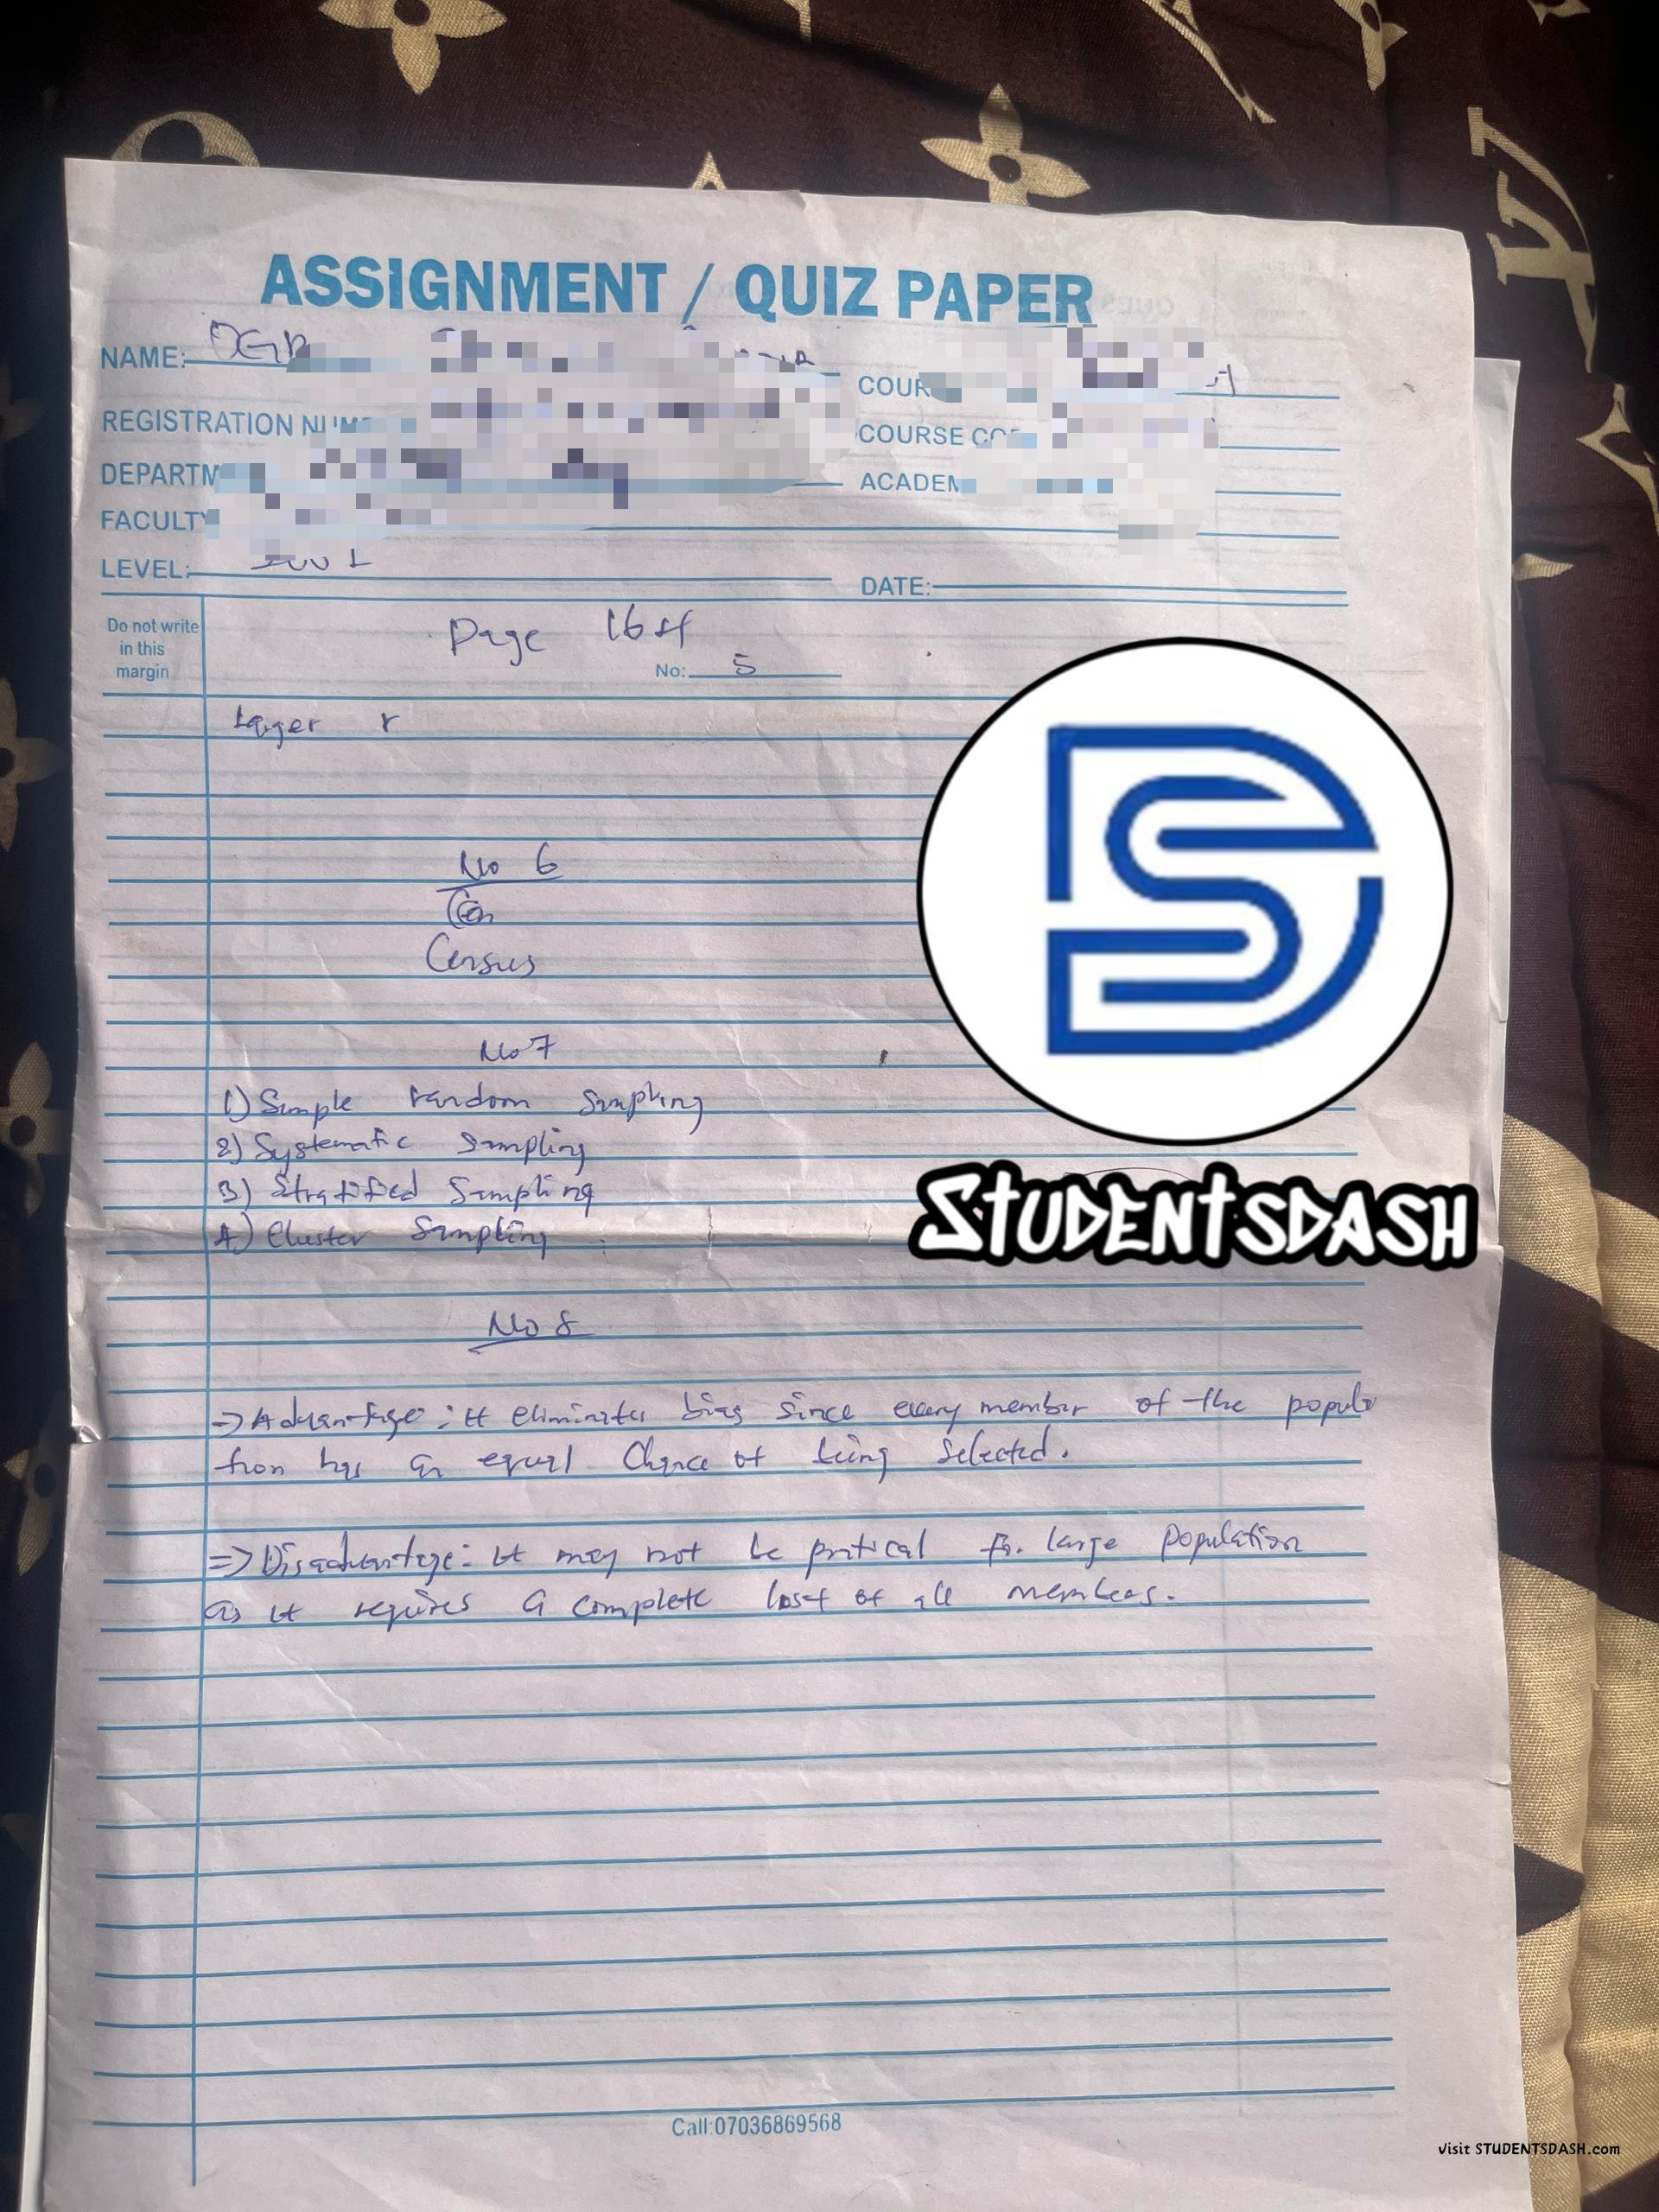 ASSIGNMENT / QUIZ PAPER
NAME:
COUR
REGISTRATION NUM
COURSE CO
DEPARTM
ACADEM
FACULTY
LEVEL:
DATE:
Do not write
in this
margin
Page
No: 5
Larger r
No 6
Cen
Census
No 7
1) Simple random Sampling
2) Systematic Sampling
3) Stratified Sampling
4) Cluster Sampling
No 8
=> Advantage: It eliminates bias since every member of the popula
tion has an equal Chance of being Selected.
=> Disadvantage: It may not be pratical for large population
as it requires a complete list of all members.
DS
STUDENTSDASH
Call:07036869568
visit STUDENTSDASH.com